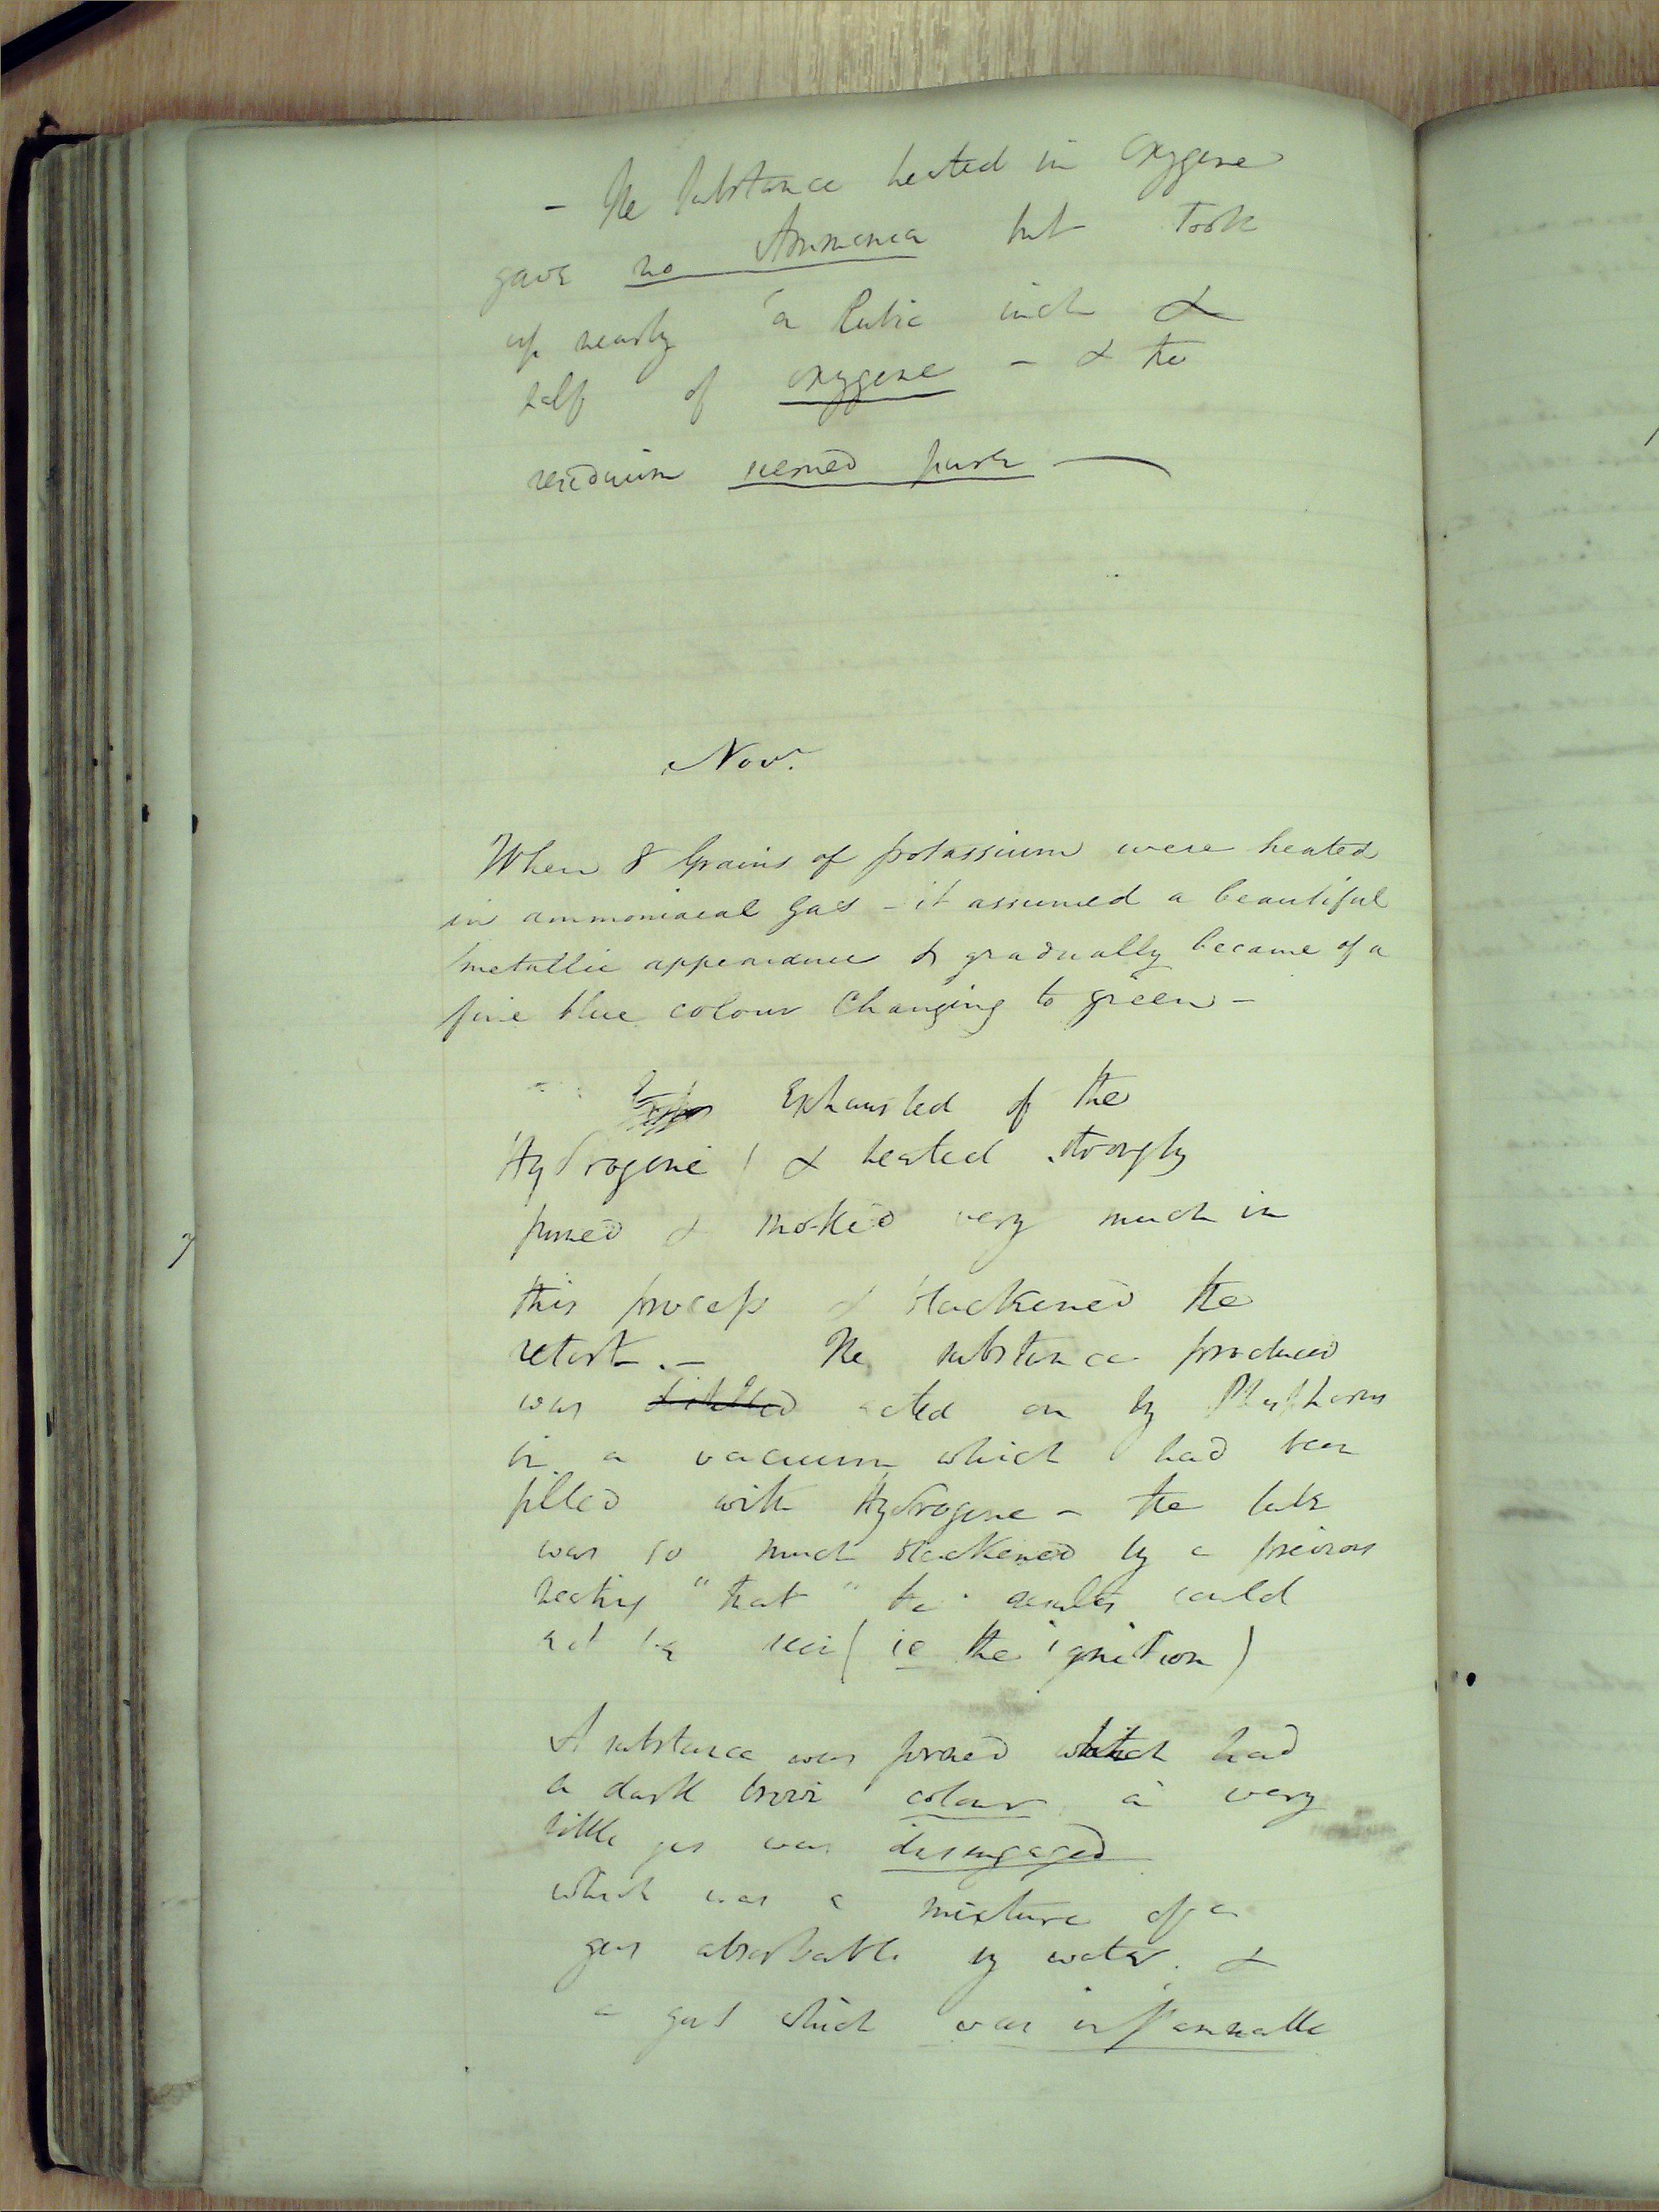 - The Substance heated in Oxygene
gave no Ammonia but took
up nearly a Cubic inch &
half of oxygene - & the
residuum seemed pure —
Nov.r
When 8 Grains of potassium were heated
in ammoniacal gas - it assumed a beautiful
metallic appearance & gradually became of a
fine blue colour Changing to green -
Exhausted of the
Hydrogene & heated strongly
fumed & smoked very much in
this process & blackened the
retort. - The substance produced
was distilled acted on by Phosphorus
in a vacuum which had been
filled with Hydrogene - the tube
was so much blackened by a previous
heating "that" the results could
not be seen (ie the ignition)
A substance was formed which had
a dark brown colour a very
little gas was disengaged
which was a mixture of a
gas absorbable by water. &
a gas which was inflammable